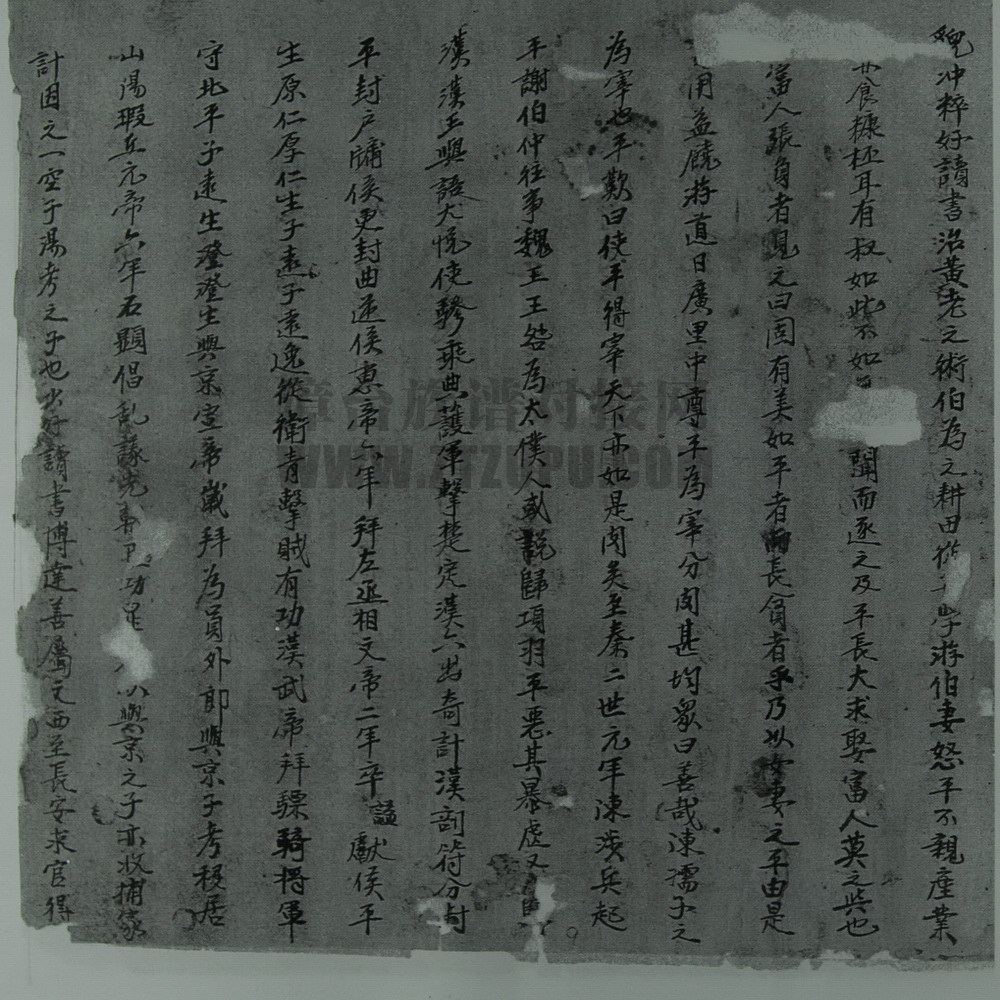 冲粹好讀書治黃老之術伯為之耕田從學游伯妻怒平不親産業
食糠耳有叔如此不如聞而逐之及平長大求娶富人莫之與也
富人張負者見之曰固有美如平者而長貧者乎乃以女妻之平由是
用益饒游道日廣里中尊平為宰分肉甚均衆曰善哉陳孺子之
為宰也平歎曰使平得宰天下亦如是肉矣至秦二世元年陳涉兵起
平謝伯仲往事魏王王咎為太僕人或說歸項羽平惡其暴虐又
漢漢王與語大悅使驂乘典護軍擊楚定漢六出奇計漢剖符分封
平封户牖侯更封曲逆侯惠帝六年拜左丞相文帝二年卒謚獻侯平
生原仁厚仁生子遠子遠逸從衛青擊賊有功漢武帝拜驃騎將軍
守北平子遠生澄澄生興京宣帝嵗拜為員外郎興京子考移居
山陽瑕丘元帝六年石顯倡亂興京之子亦收捕
計因之一空于湯考之子也少好讀書博達善屬文西至長安求官得
章台族谱对接网
WWW.ZTZUPU.COM